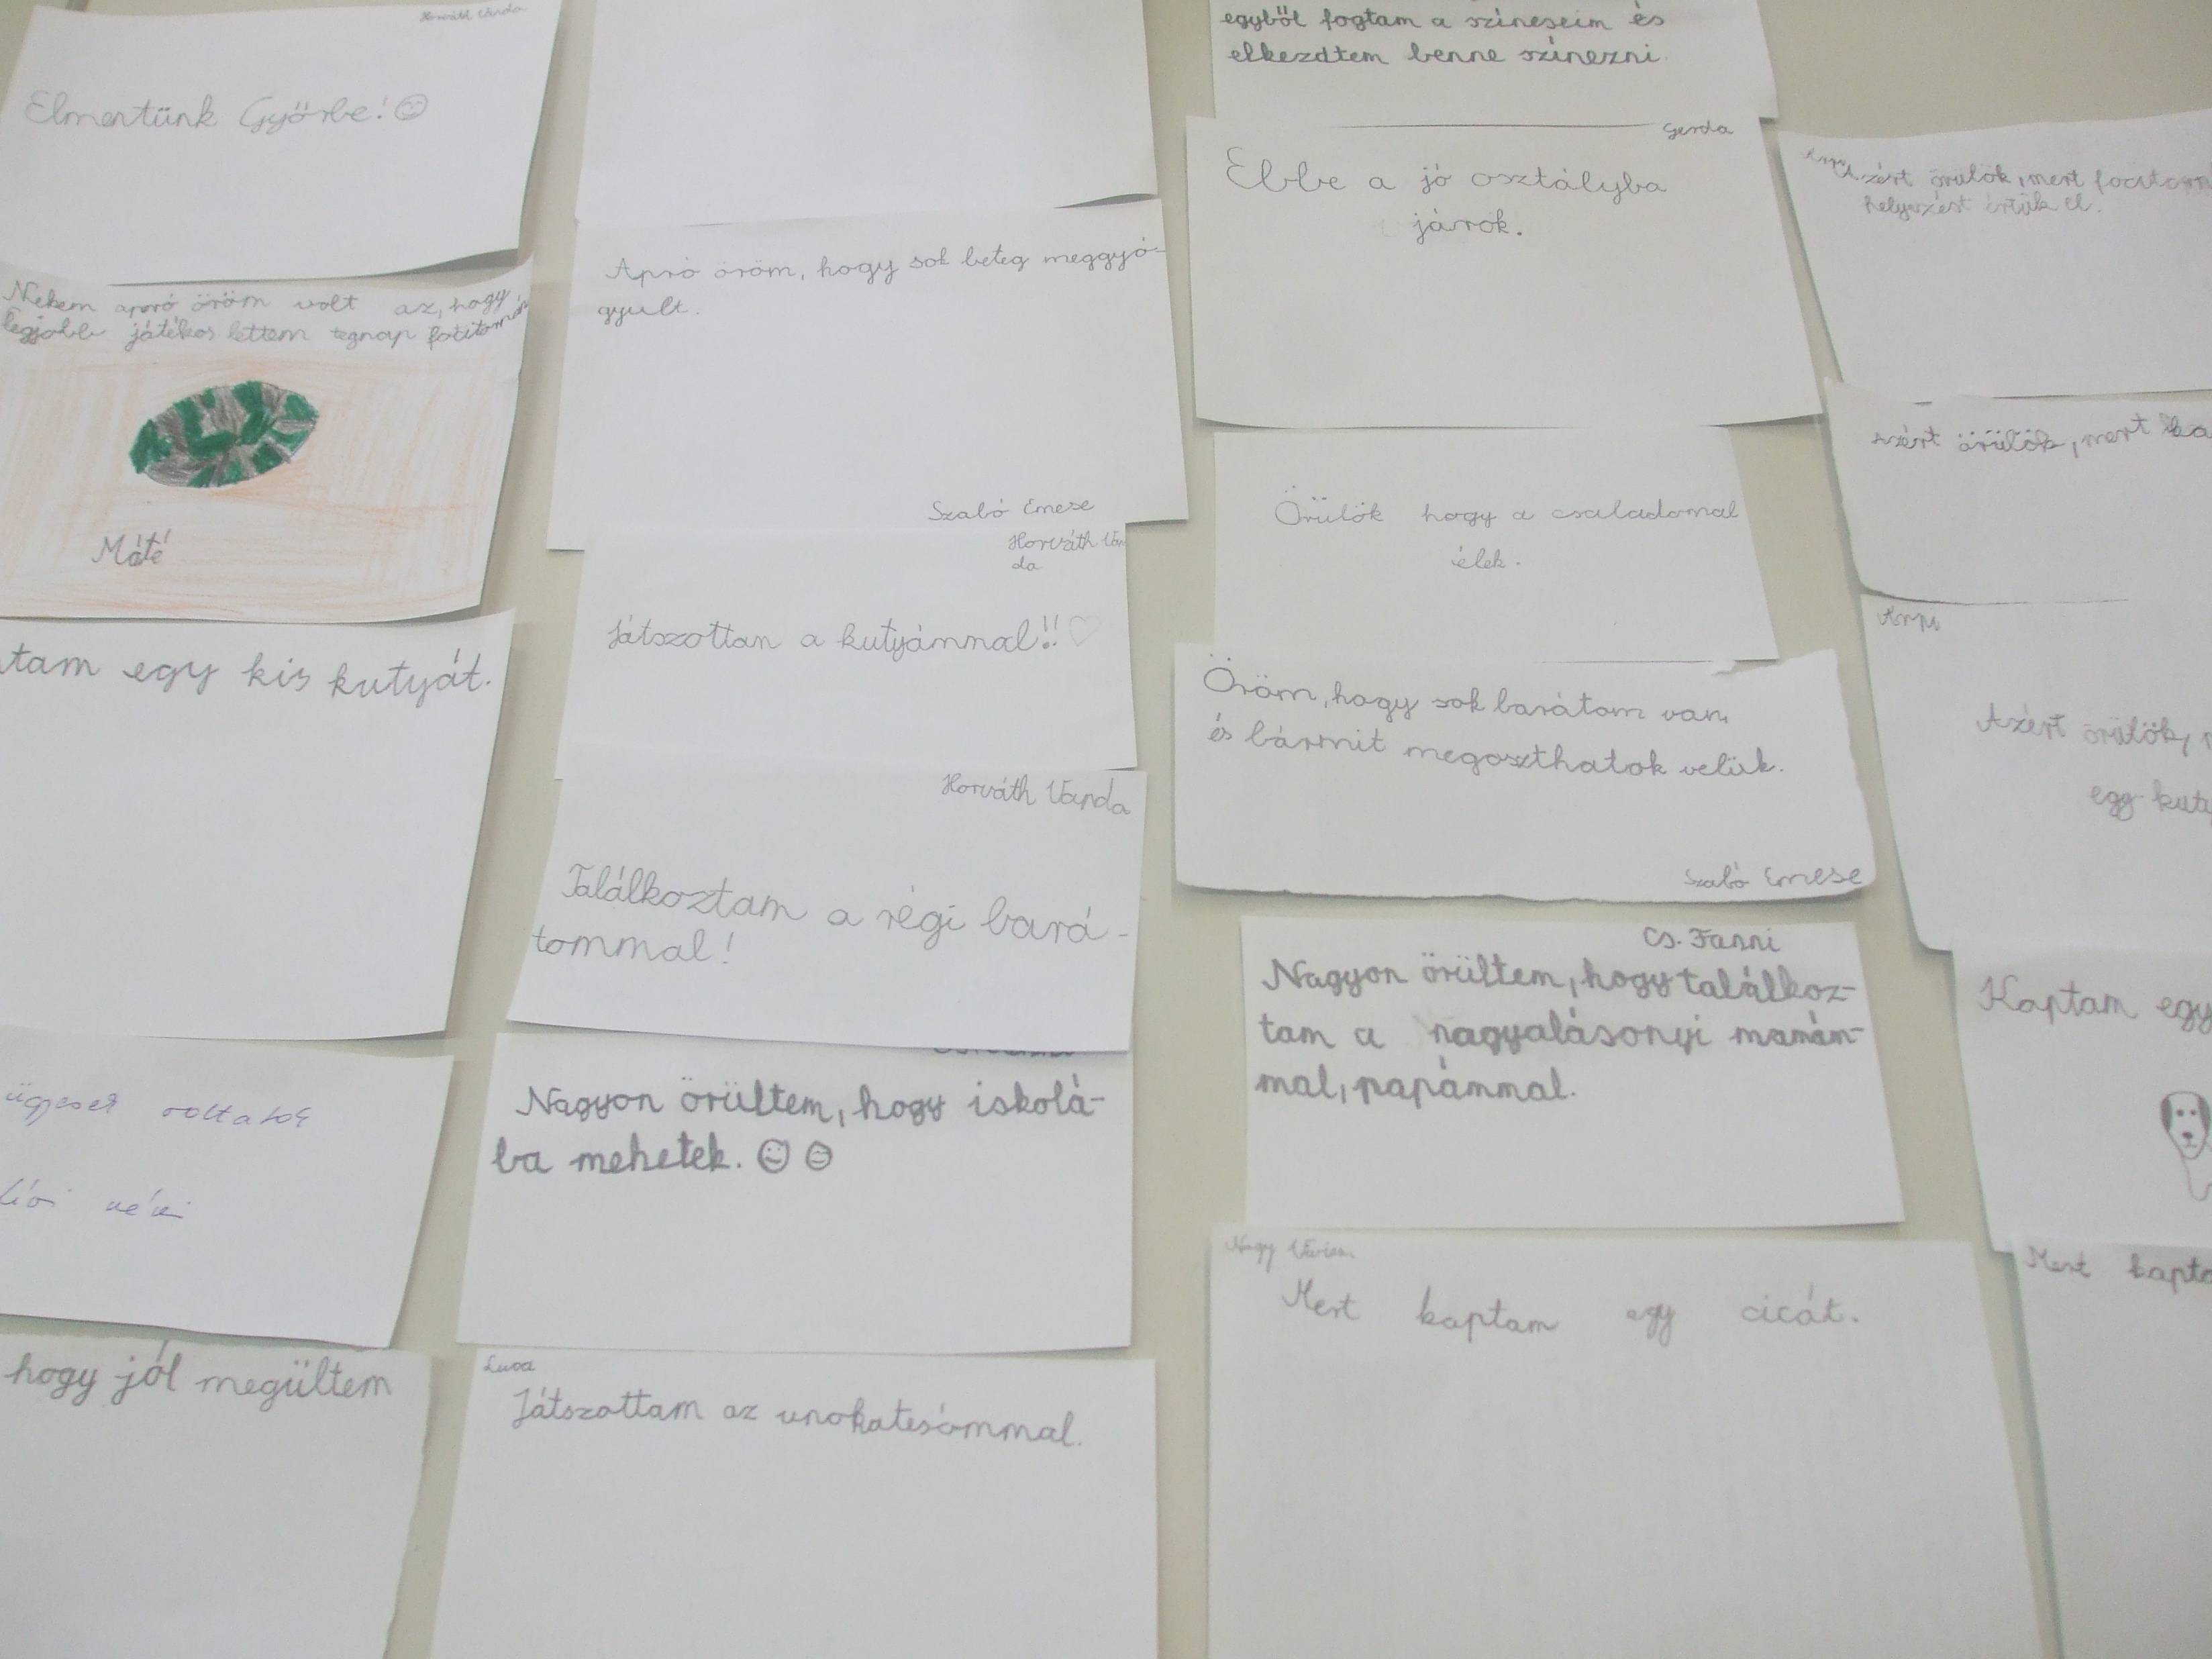 Horváth Vanda
Elmentünk Győrbe!
Nekem apró öröm volt az, hogy
legjobb játékos lettem tegnap focitornán
Máté
tam egy kis kutyát.
ügyesek voltatok
néni
hogy jól megültem
Apró öröm, hogy sok beteg meggyó-
gyult.
Szabó Emese
Horváth Van
da
Játszottan a kutyámmal!!♡
Horváth Vanda
Találkoztam a régi bará-
tommal!
Nagyon örültem, hogy iskolá-
ba mehetek. ☺☺
Luca
Játszottam az unokatesómmal.
egyből fogtam a színeseim és
elkezdtem benne színezni.
Gerda
Ebbe a jó osztályba
járok.
Örülök hogy a csaladomal
élek.
Öröm, hogy sok barátom van,
és bármit megoszthatok velük.
Szabó Emese
Cs. Fanni
Nagyon örültem, hogy találkoz-
tam a nagyalásonyi mamám-
mal, papámmal.
Nagy Vivien
Mert kaptam egy cicát.
Azért örülök, mert
helyezést értük el.
azért örülök, mert ka
Azért örülök,
egy kuty
Kaptam egy
Mert kapta